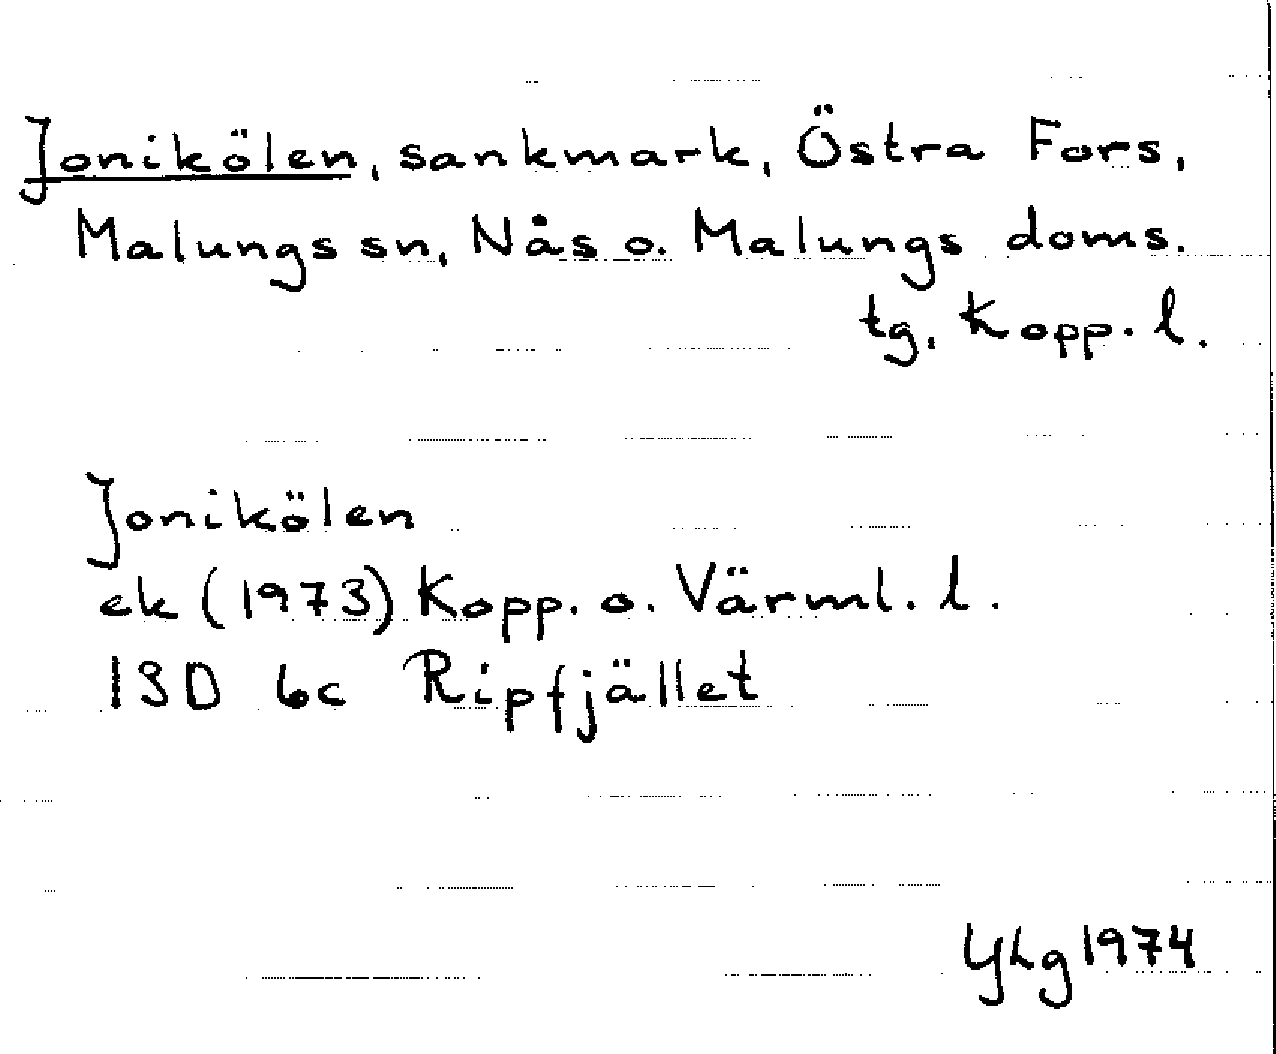 Jonikölen, sankmark, Östra Fors,
Malungs sn, Nås o. Malungs doms.
tg. Kopp. l.
Jonikölen
ek (1973) Kopp. o. Värml. l.
13D 6c Ripfjället
YLg 1974